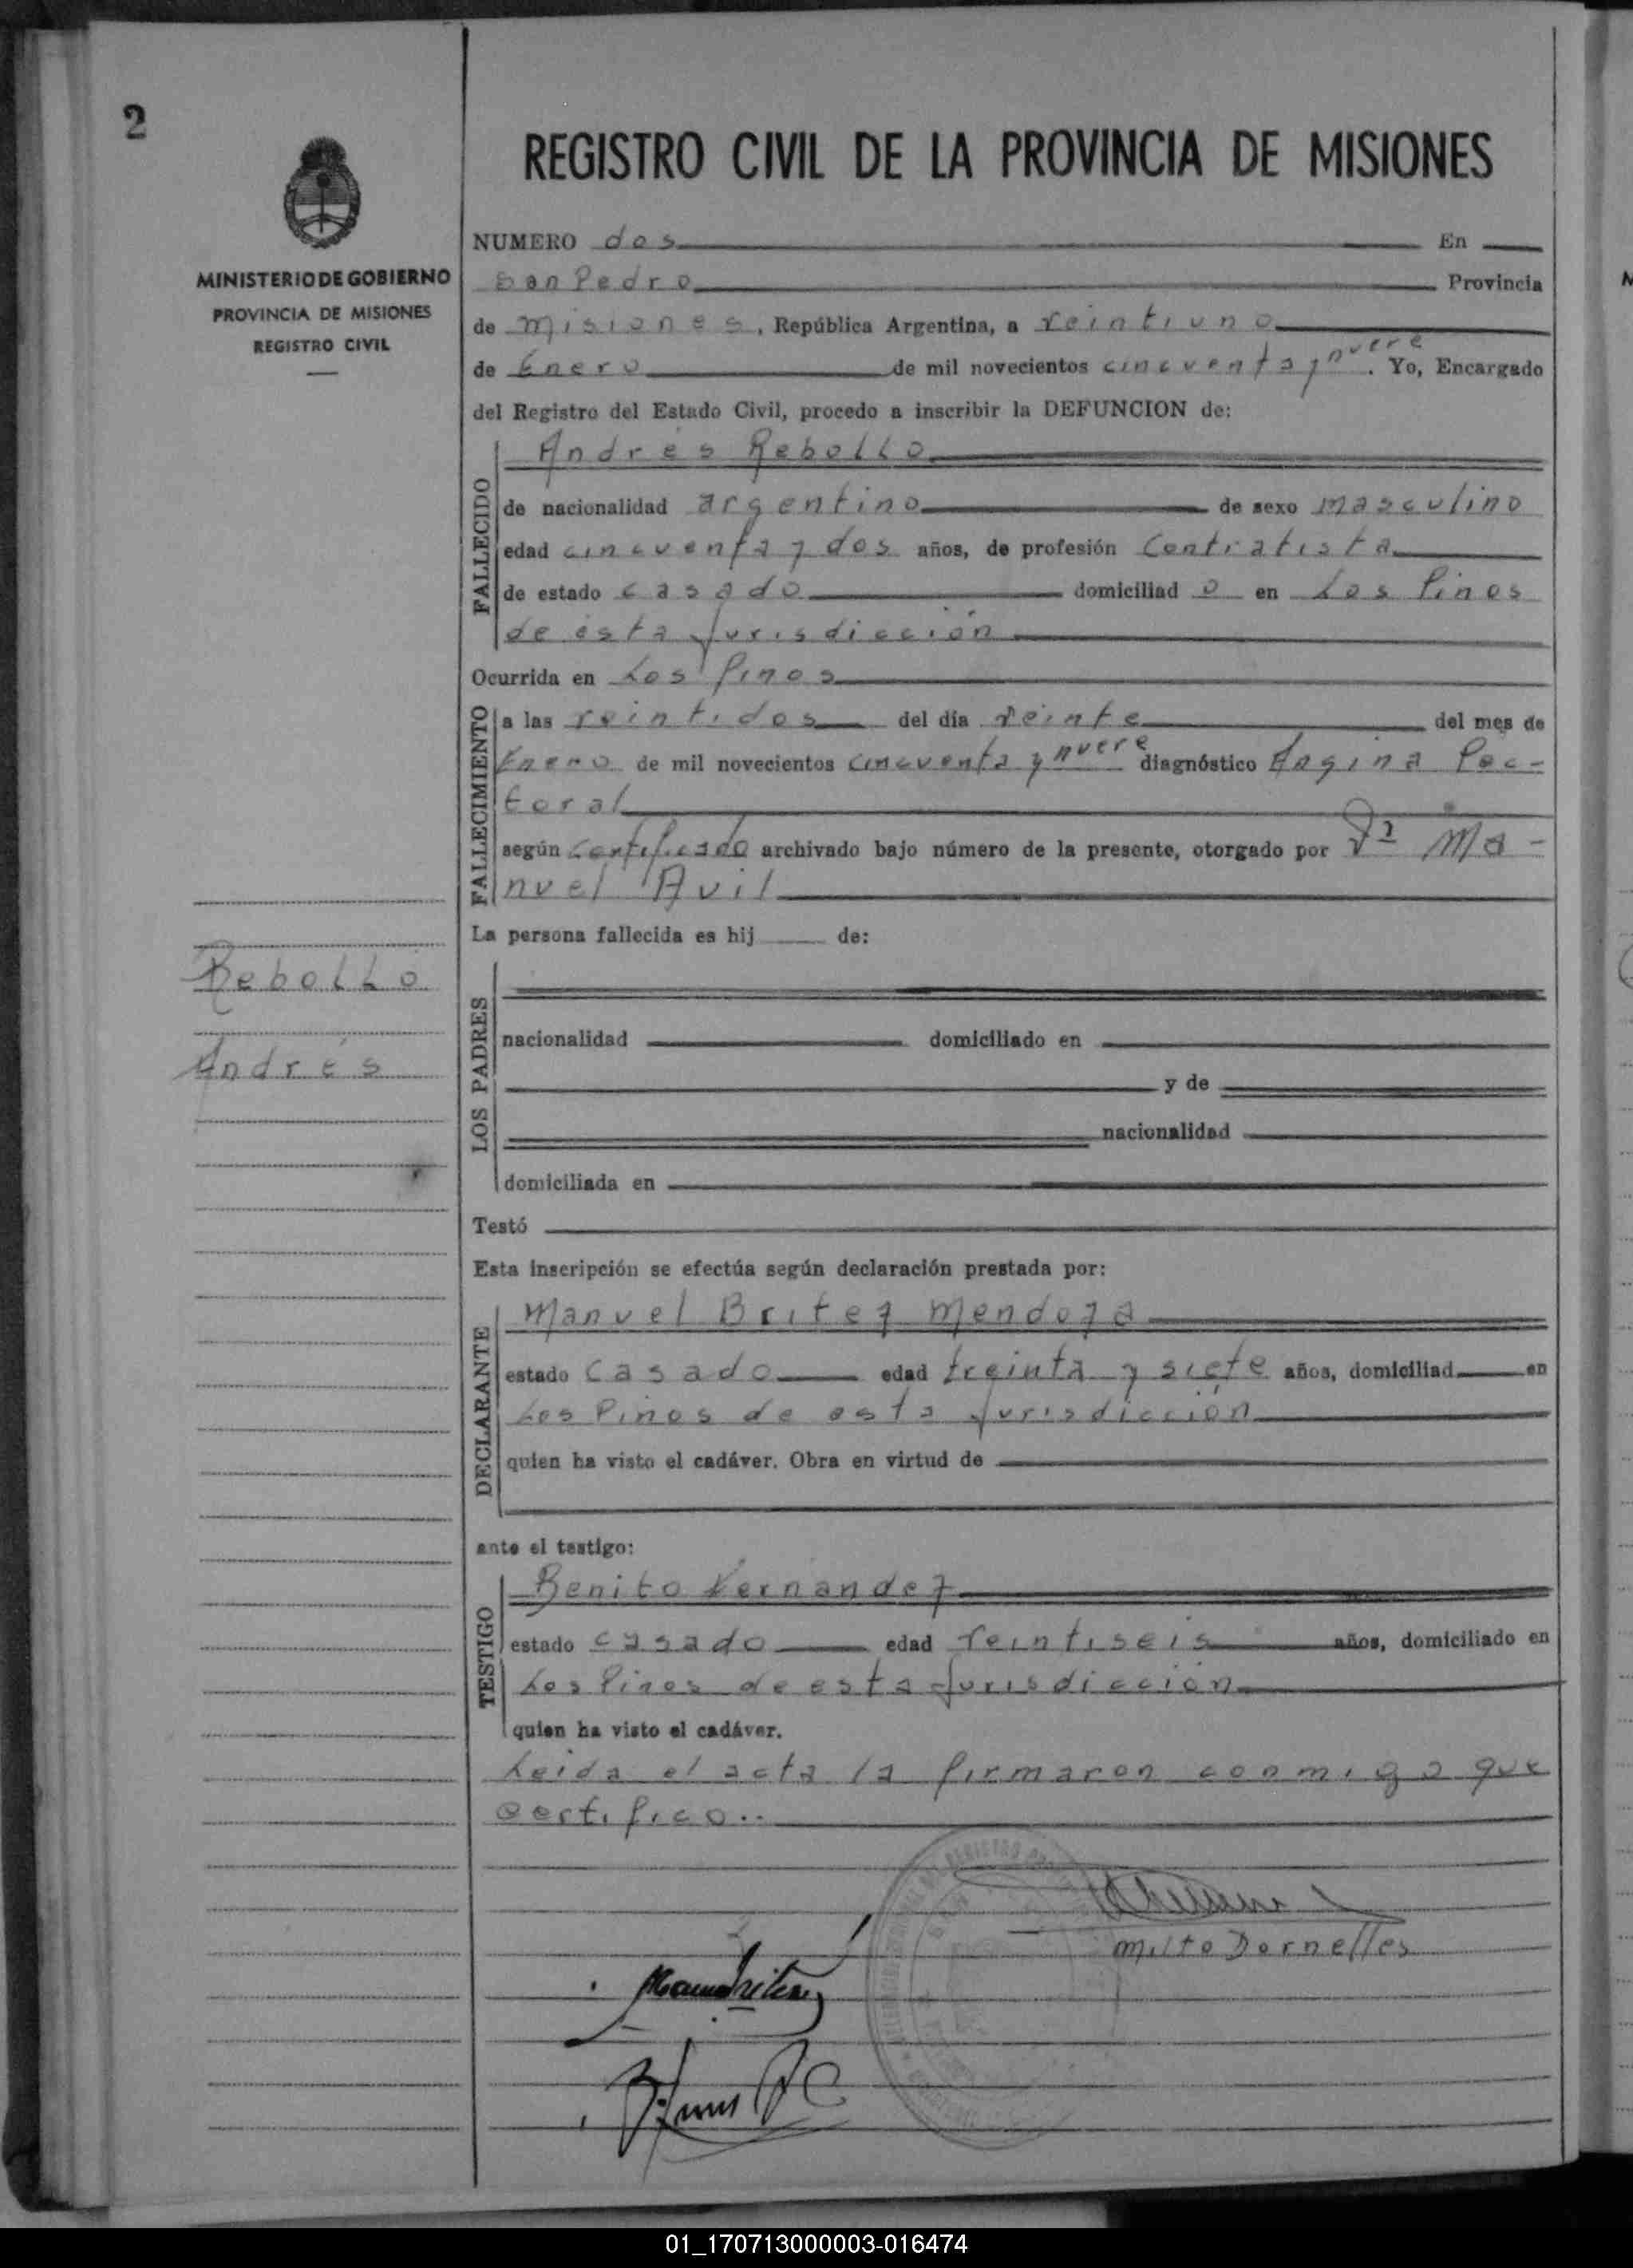 2
REGISTRO CIVIL DE LA PROVINCIA DE MISIONES
MINISTERIO DE GOBIERNO
PROVINCIA DE MISIONES
REGISTRO CIVIL
NUMERO dos En
San Pedro Provincia
de Misiones, República Argentina, a veintiuno
de Enero de mil novecientos cincuenta y nueve. Yo, Encargado
del Registro del Estado Civil, procedo a inscribir la DEFUNCION de:
FALLECIDO
Andrés Rebollo
de nacionalidad argentino de sexo masculino
edad cincuenta y dos años, de profesión Contratista
de estado casado domiciliad o en Los Pinos
de ésta Jurisdicción
Ocurrida en Los Pinos
FALLECIMIENTO
a las veintidos del día veinte del mes de
Enero de mil novecientos cincuenta y nueve diagnóstico Angina Pec-
toral
según Certificado archivado bajo número de la presente, otorgado por Ma-
nuel Avil
La persona fallecida es hij de:
Rebollo
Andrés
LOS PADRES
nacionalidad domiciliado en
y de
nacionalidad
domiciliada en
Testó
Esta inscripción se efectúa según declaración prestada por:
DECLARANTE
Manuel Britez Mendoza
estado Casado edad treinta y siete años, domiciliad en
Los Pinos de esta Jurisdicción
quien ha visto el cadáver. Obra en virtud de
ante el testigo:
TESTIGO
Benito Fernandez
estado casado edad veintiseis años, domiciliado en
Los Pinos de esta Jurisdicción
quien ha visto el cadáver.
Leida el acta la firmaron conmigo que
certifico..
Milto Dornelles
01_170713000003-016474